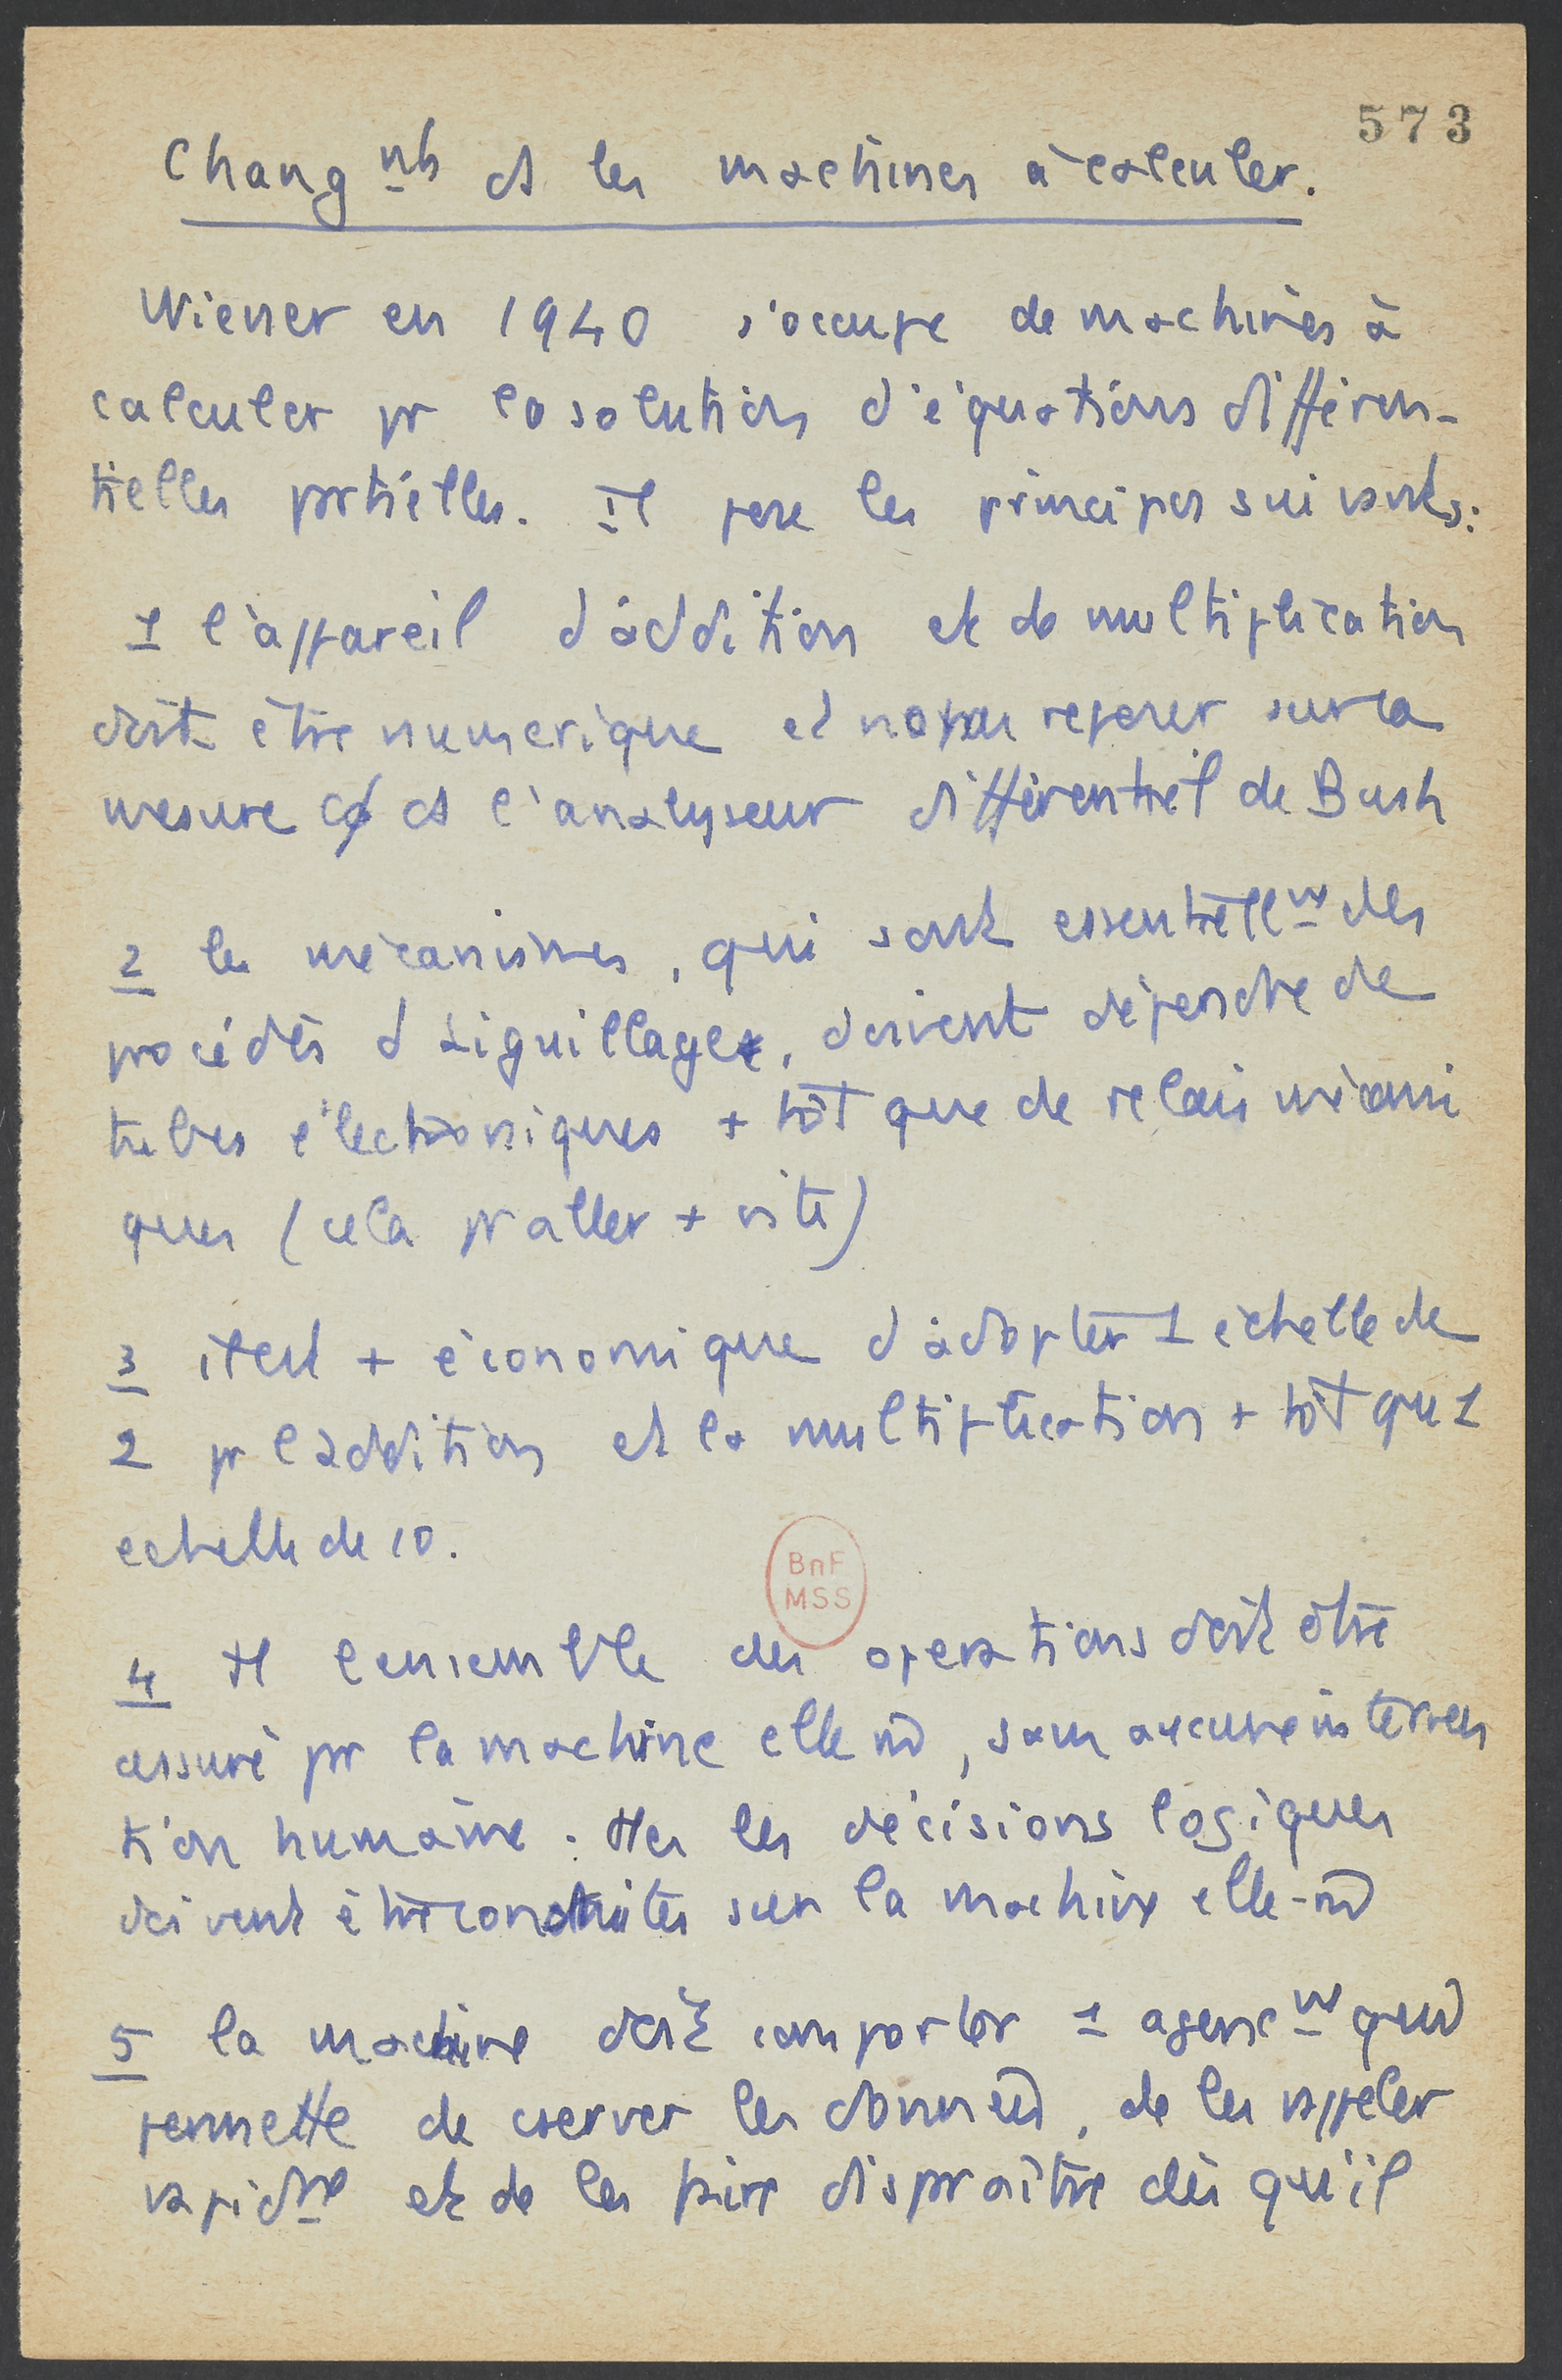 573
Chang nts ds les machines à calculer.
Wiener en 1940 s'occupe de machines à
calculer pr la solution d'équations différen-
tielles prtielles. Il pose les principes suivants:
1 l'appareil d'addition et de multiplication
doit être numerique et non reposer sur la
mesure ds l'analyseur différentiel de Bush
2 les mécanismes, qui sont essentiellmt des
procédés d'aiguillage, doivent dépendre de
tubes électroniques + tôt que de relais mécani
ques (cela pr aller + vite)
3 il est + économique d'adopter 1 échelle de
2 pr l'addition et la multiplication + tôt qu 1
echelle de 10.
4 tt l'ensemble des operations doit être
assuré pr la machine elle m̂, sans aucune interven
tion humaine : ttes les décisions logiques
doivent être construites sur la machine elle-m̂
5 la machine doit comporter 1 agencmt qui
permette de cserver les données, de les rappeler
rapidmt et de les faire dispraître dès qu'il
BnF
MSS